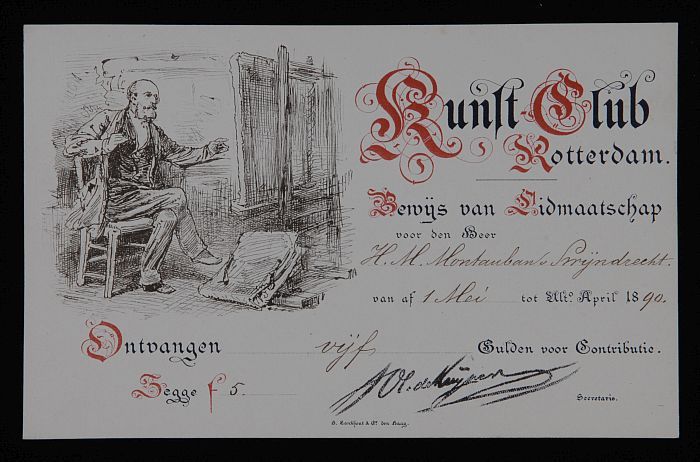 Kunst-Club
Rotterdam.
Bewijs van Lidmaatschap
voor den Heer
H. M. Montauban v Swijndrecht.
van af 1 Mei tot Ult.º April 1890.
Ontvangen vijf Gulden voor Contributie.
Zegge f 5.
Secretaris.
& Cº. den Haag.